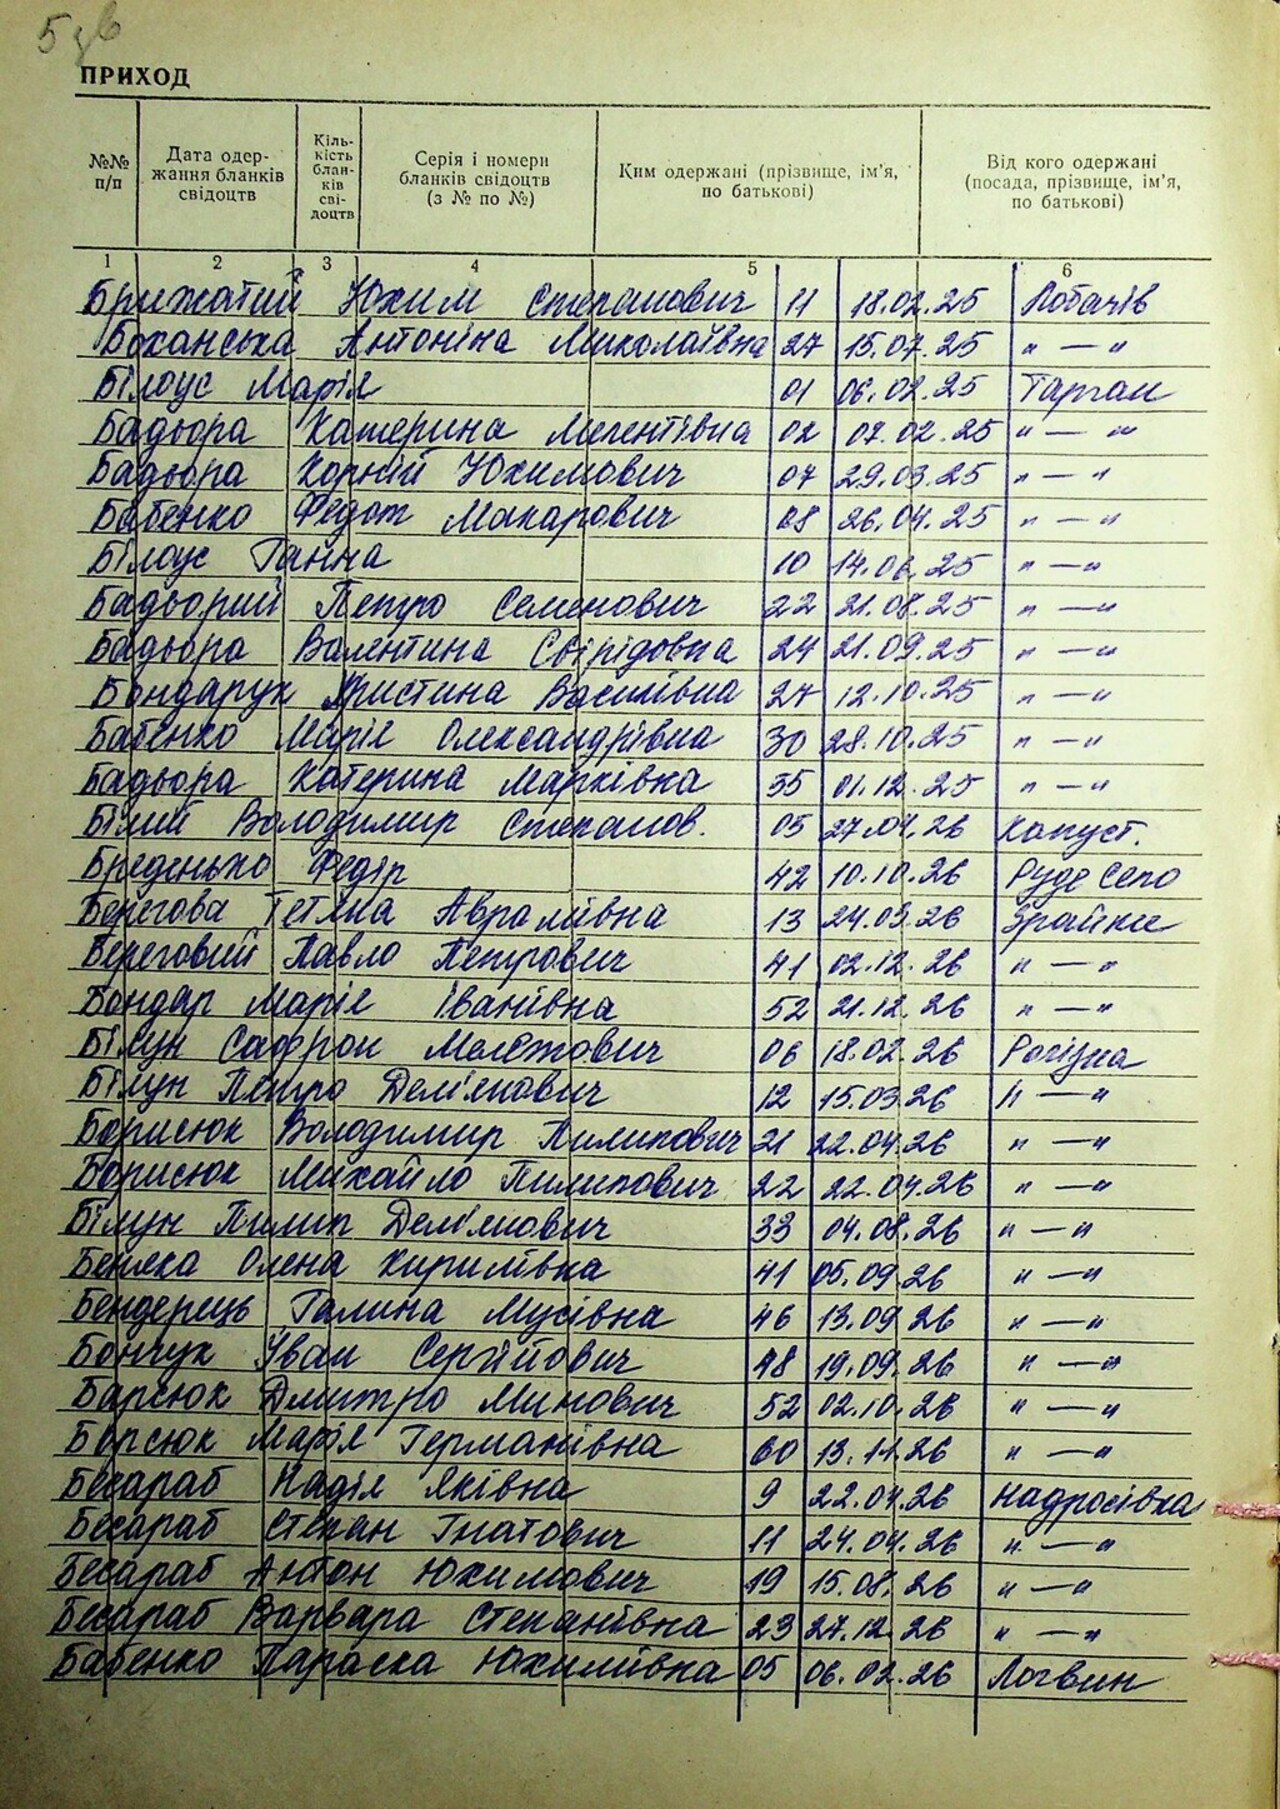 5зв
ПРИХОД
№№ п/п
Дата одер-
жання бланків
свідоцтв
Кіль-
кість
блан-
ків
сві-
доцтв
Серія і номери
бланків свідоцтв
(з № по №)
Ким одержані (прізвище, ім'я,
по батькові)
Від кого одержані
(посада, прізвище, ім'я,
по батькові)
1 2 3 4 5 6
Брижатий Юхим Степанович 11 18.02.25 Лобачів
Боканська Антоніна Миколаївна 27 15.07.25 " — "
Білоус Марія 01 06.02.25 Тарган
Бадьора Катерина Мелентівна 02 07.02.25 " — "
Бадьора Корній Юхимович 07 29.03.25 " — "
Бабенко Федот Макарович 08 26.04.25 " — "
Білоус Ганна 10 14.06.25 " — "
Бадьорий Петро Семенович 22 21.08.25 " — "
Бадьора Валентина Свірідовна 24 21.09.25 " — "
Бондарук Христина Василівна 27 12.10.25 " — "
Бабенко Марія Олександрівна 30 28.10.25 " — "
Бадьора Катерина Марківна 35 01.12.25 " — "
Білий Володимир Степанов. 05 27.04.26 Капуст.
Бреденько Федір 42 10.10.26 Руде Село
Берегова Тетяна Авраліївна 13 24.03.26 Брайки
Береговий Павло Петрович 41 02.12.26 " — "
Бондар Марія Іванівна 52 21.12.26 " — "
Білун Сафрон Мелетович 06 18.02.26 Рогізна
Білун Петро Дем'янович 12 15.03.26 " — "
Борисюк Володимир Пилипович 21 22.04.26 " — "
Борисюк Михайло Пилипович 22 22.04.26 " — "
Білун Пилип Дем'янович 33 04.08.26 " — "
Беняка Олена Кирилівна 41 05.09.26 " — "
Бендерець Галина Мусівна 46 13.09.26 " — "
Бончук Іван Сергійович 48 19.09.26 " — "
Барсюк Дмитро Минович 52 02.10.26 " — "
Борсюк Марія Германівна 60 13.11.26 " — "
Бесараб Надія Яківна 9 22.04.26 Надросівка
Бесараб Степан Гнатович 11 24.04.26 " — "
Бесараб Антон Юхимович 19 15.08.26 " — "
Бесараб Варвара Степанівна 23 27.12.26 " — "
Бабенко Параска Юхимівна 05 06.02.26 Логвин